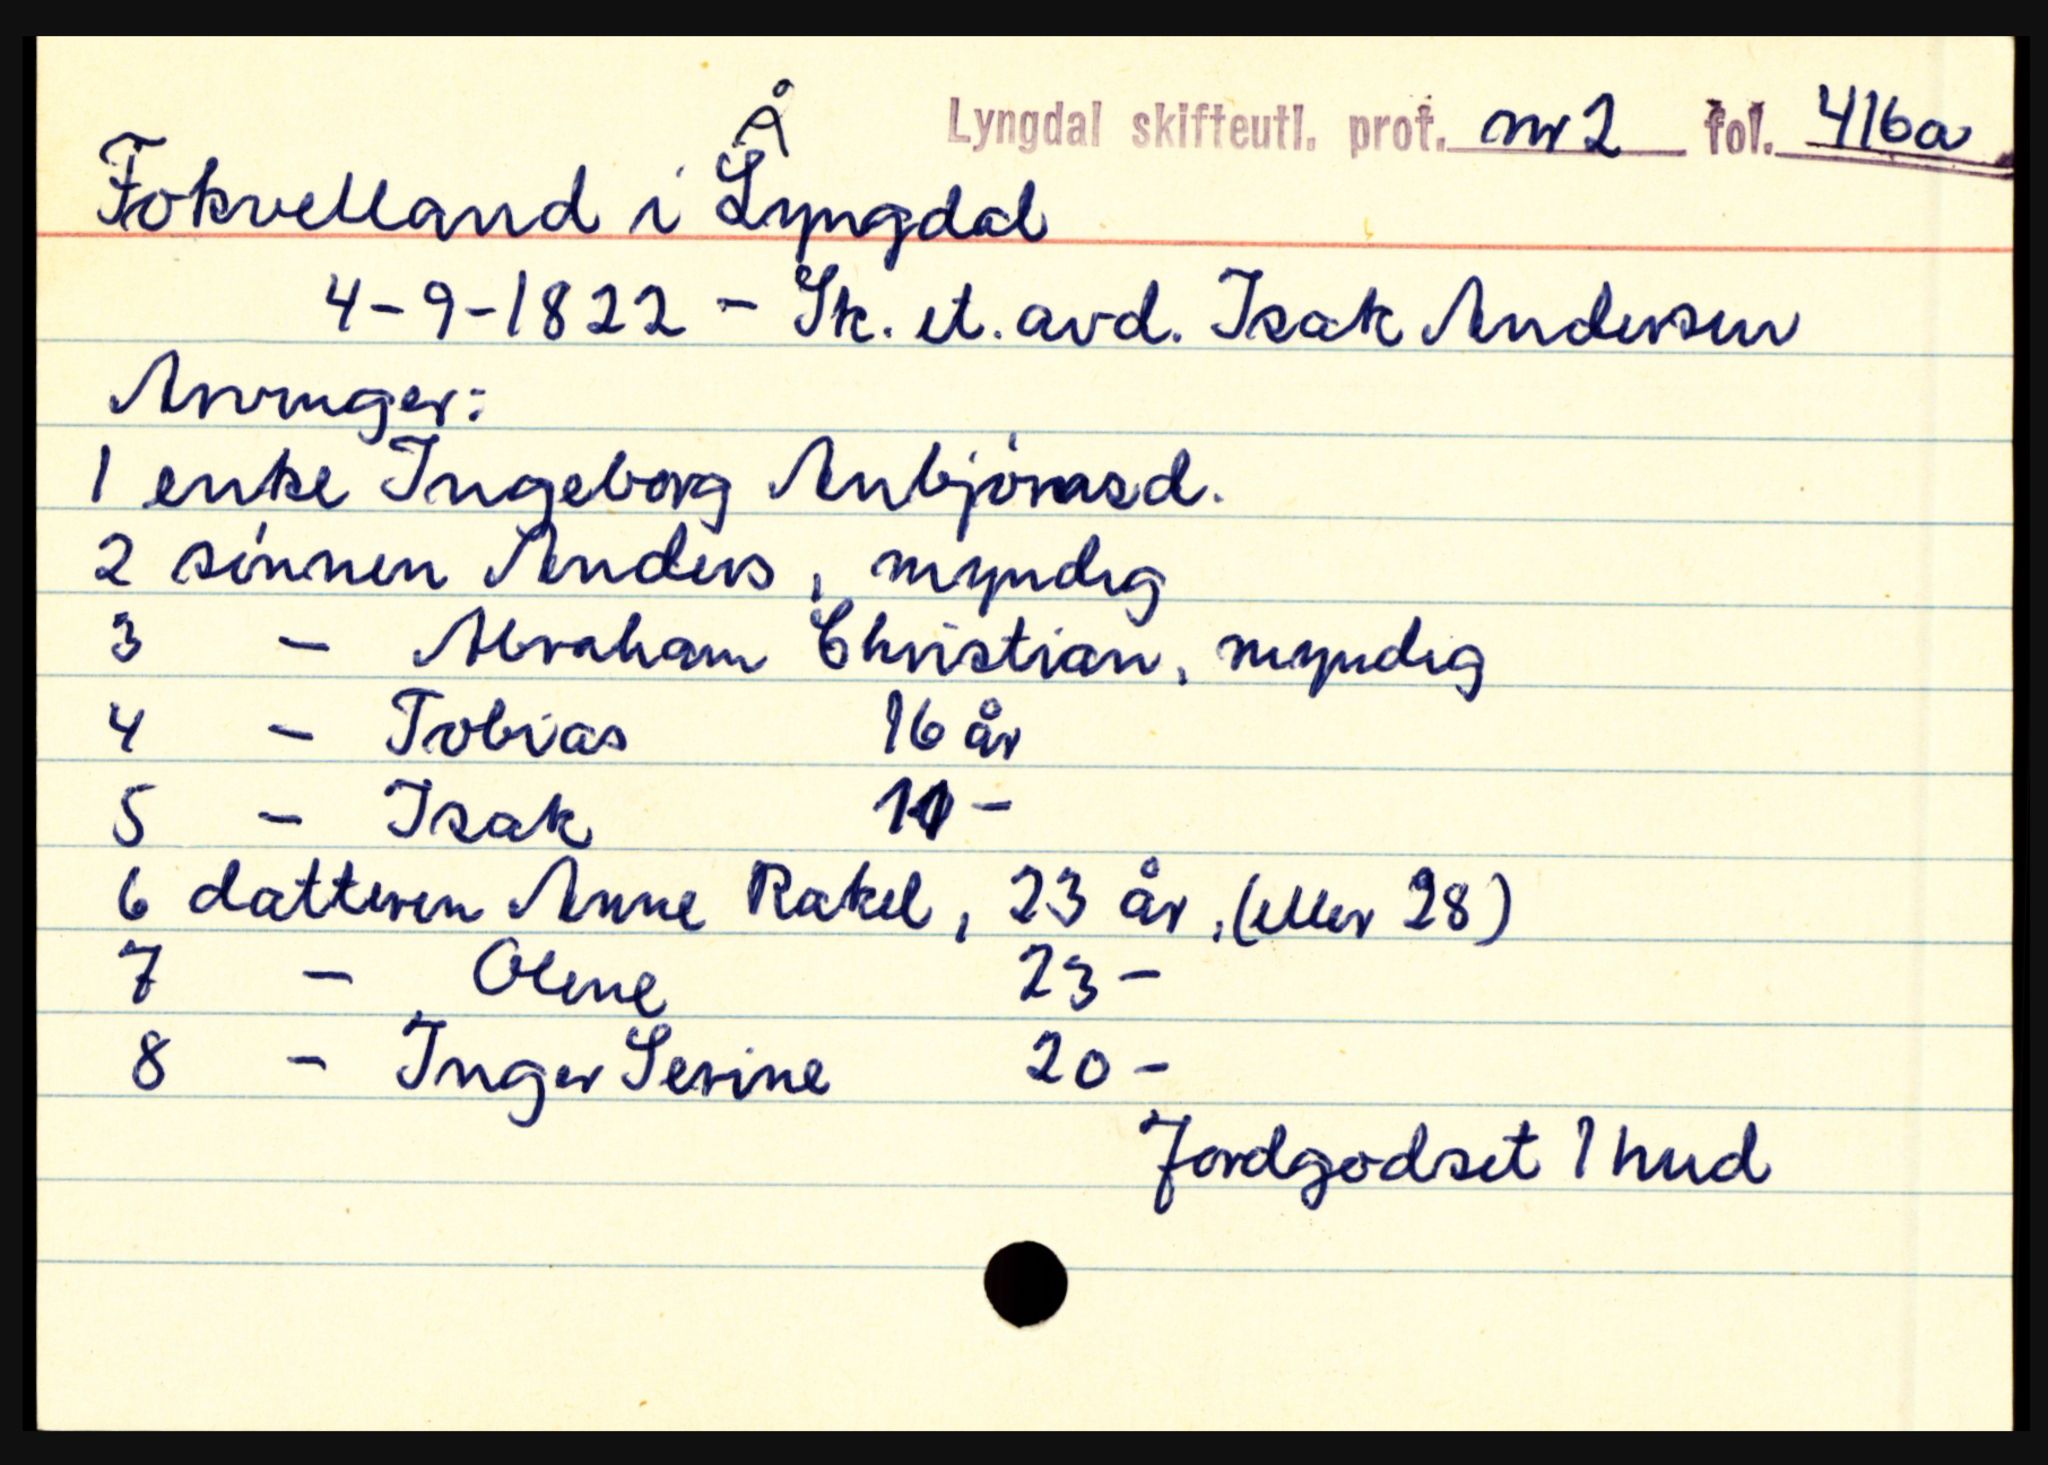 Lyngdal skifteutl. prot. nr 2 fol. 416a
Å
Fokvelland i Lyngdal
4-9-1822 - Sk. et. avd. Isak Andersen
Arvinger:
1 enke Ingeborg Anbjörnsd.
2 sönnen Anders, myndig
3 - Abraham Christian, myndig
4 - Tobias 16 år
5 - Isak 11 -
6 datteren Anne Rakel, 23 år, (eller 28)
7 - Olene 23 -
8 - Inger Serine 20 -
Jordgodset 1 hud